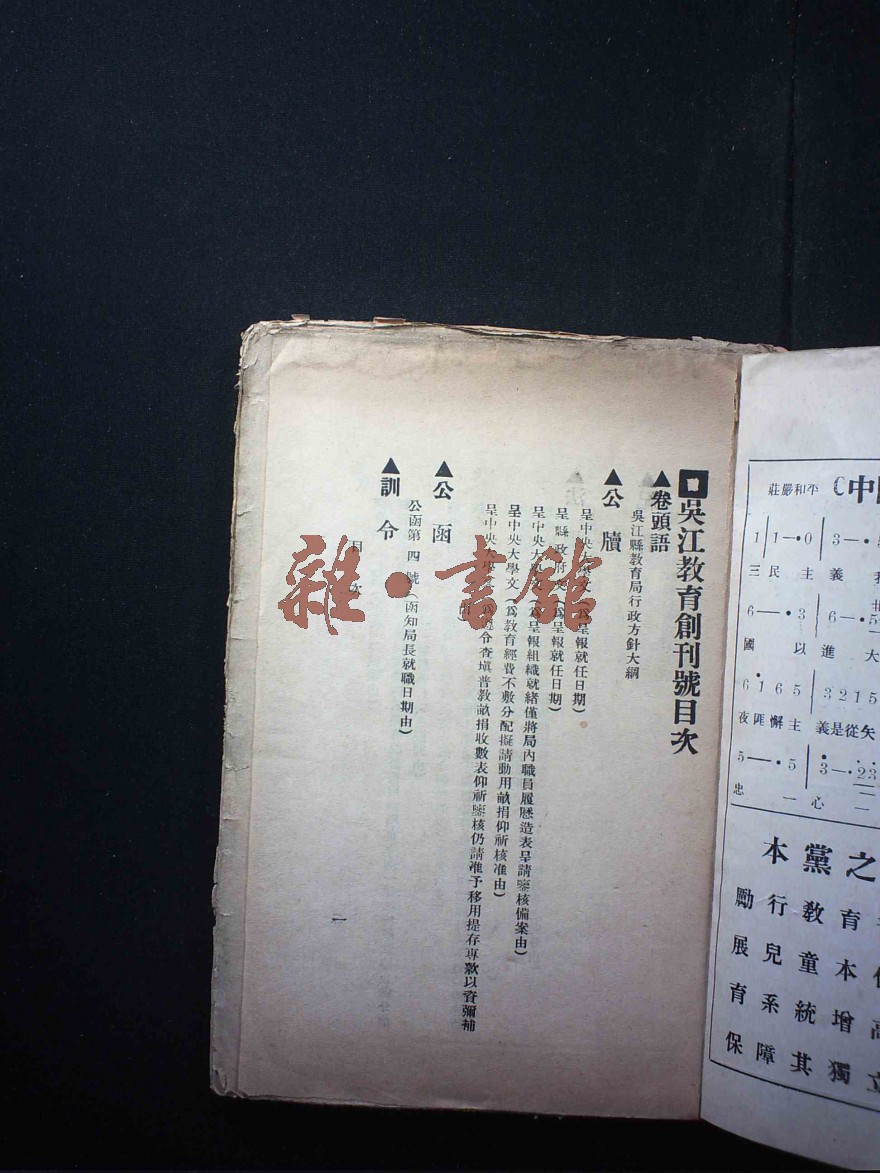 吳江教育創刊號目次
▲卷頭語
吳江縣教育局行政方針大綱
▲公牘
呈中央大學文(爲呈報就任日期)
呈縣政府文(爲呈報就任日期)
呈中央大學文(爲呈報組織就緒僅將局內職員履歷造表呈請鑒核備案由)
呈中央大學文(爲教育經費不敷分配擬請動用畝捐仰祈核准由)
呈中央大學文(爲遵令查塡普教畝捐收數表仰祈鑒核仍請准予移用提存專款以資彌補
由)
▲公函
公函第四號(函知局長就職日期由)
▲訓令
目次
一
雜·書館
中
莊嚴和平
1 1—·0 3—·
三民主義
6—·3 6—·5
國以進大
6 1 6 5 3 2 1 5
夜匪懈主義是從矢
5—·5 3—·23
忠一心一
本黨之
勵行教育
展兒童本
育系統增高
保障其獨立